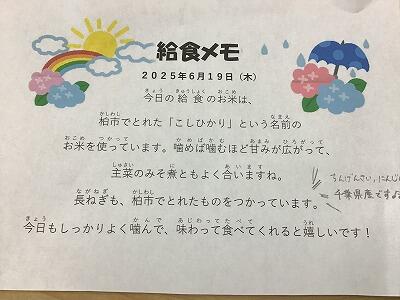 給食メモ
2025年6月19日（木）
今日の給食のお米は、
柏市でとれた「こしひかり」という名前の
お米を使っています。噛めば噛むほど甘みが広がって、
主菜のみそ煮ともよく合いますね。
長ねぎも、柏市でとれたものをつかっています。
ちんげんさい、にんじん
千葉県産ですよ
今日もしっかりよく噛んで、味わって食べてくれると嬉しいです！